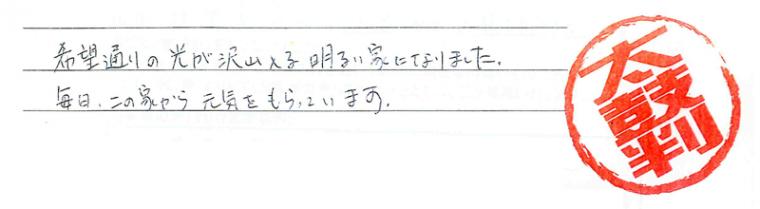 希望通りの光が沢山入る明るい家になりました。
毎日、この家から元気をもらっています。
太鼓判